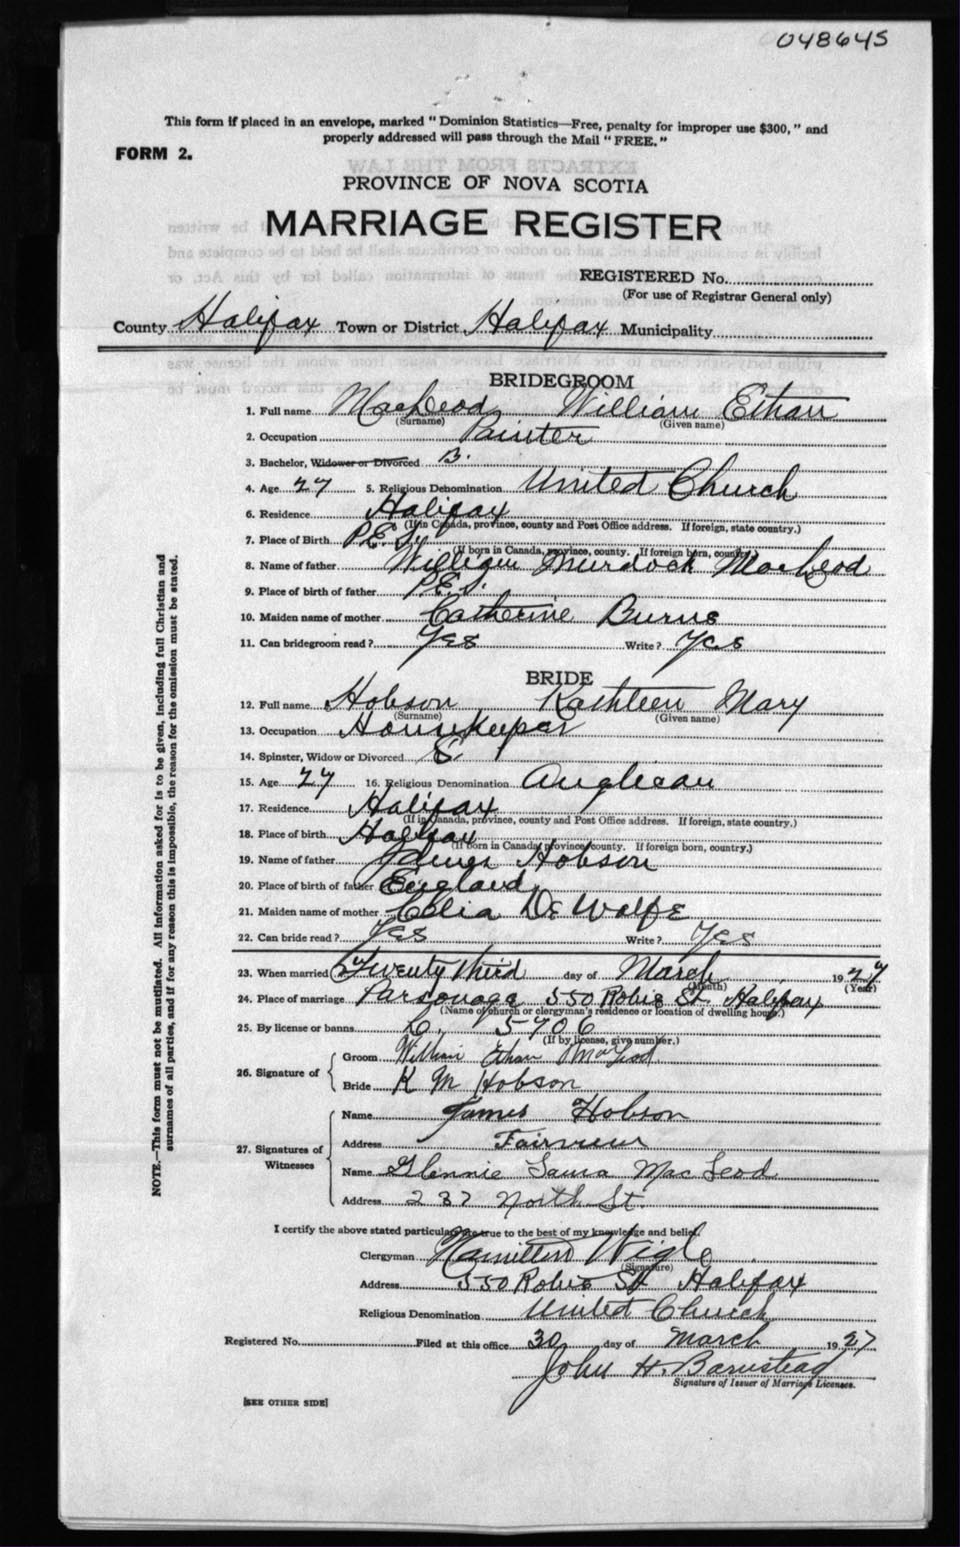 048645
This form if placed in an envelope, marked "Dominion Statistics—Free, penalty for improper use $300," and
properly addressed will pass through the Mail "FREE."
FORM 2.
PROVINCE OF NOVA SCOTIA
MARRIAGE REGISTER
REGISTERED No.
(For use of Registrar General only)
County Halifax Town or District Halifax Municipality
BRIDEGROOM
1. Full name MacLeod William Ethan
(Surname) (Given name)
2. Occupation Painter
3. Bachelor, Widower or Divorced B.
4. Age 27 5. Religious Denomination United Church
6. Residence Halifax
(If in Canada, province, county and Post Office address. If foreign, state country.)
7. Place of Birth P.E.I.
(If born in Canada, province, county. If foreign born, country.)
8. Name of father William Murdock MacLeod
9. Place of birth of father P.E.I.
10. Maiden name of mother Catherine Burns
11. Can bridegroom read? Yes Write? Yes
BRIDE
12. Full name Hobson Kathleen Mary
(Surname) (Given name)
13. Occupation Housekeeper
14. Spinster, Widow or Divorced S.
15. Age 27 16. Religious Denomination Anglican
17. Residence Halifax
(If in Canada, province, county and Post Office address. If foreign, state country.)
18. Place of birth Halifax
(If born in Canada, province, county. If foreign born, country.)
19. Name of father James Hobson
20. Place of birth of father England
21. Maiden name of mother Celia DeWolfe
22. Can bride read? Yes Write? Yes
23. When married Twenty third day of March 1927
(Month) (Year)
24. Place of marriage Parsonage 550 Robie St Halifax
(Name of church or clergyman's residence or location of dwelling house.)
25. By license or banns L. 5706
(If by license, give number.)
26. Signature of
Groom William Ethan MacLeod
Bride K M Hobson
27. Signatures of Witnesses
Name James Hobson
Address Fairview
Name Glennie Laura MacLeod
Address 287 North St.
I certify the above stated particulars are true to the best of my knowledge and belief.
Clergyman Hamilton Wigle
(Signature)
Address 550 Robie St Halifax
Religious Denomination United Church
Registered No. Filed at this office 30 day of March 1927
John H. Barnstead
Signature of Issuer of Marriage Licenses.
[SEE OTHER SIDE]
NOTE.—This form must not be mutilated. All information asked for is to be given, including full Christian and
surnames of all parties, and if for any reason this is impossible, the reason for the omission must be stated.